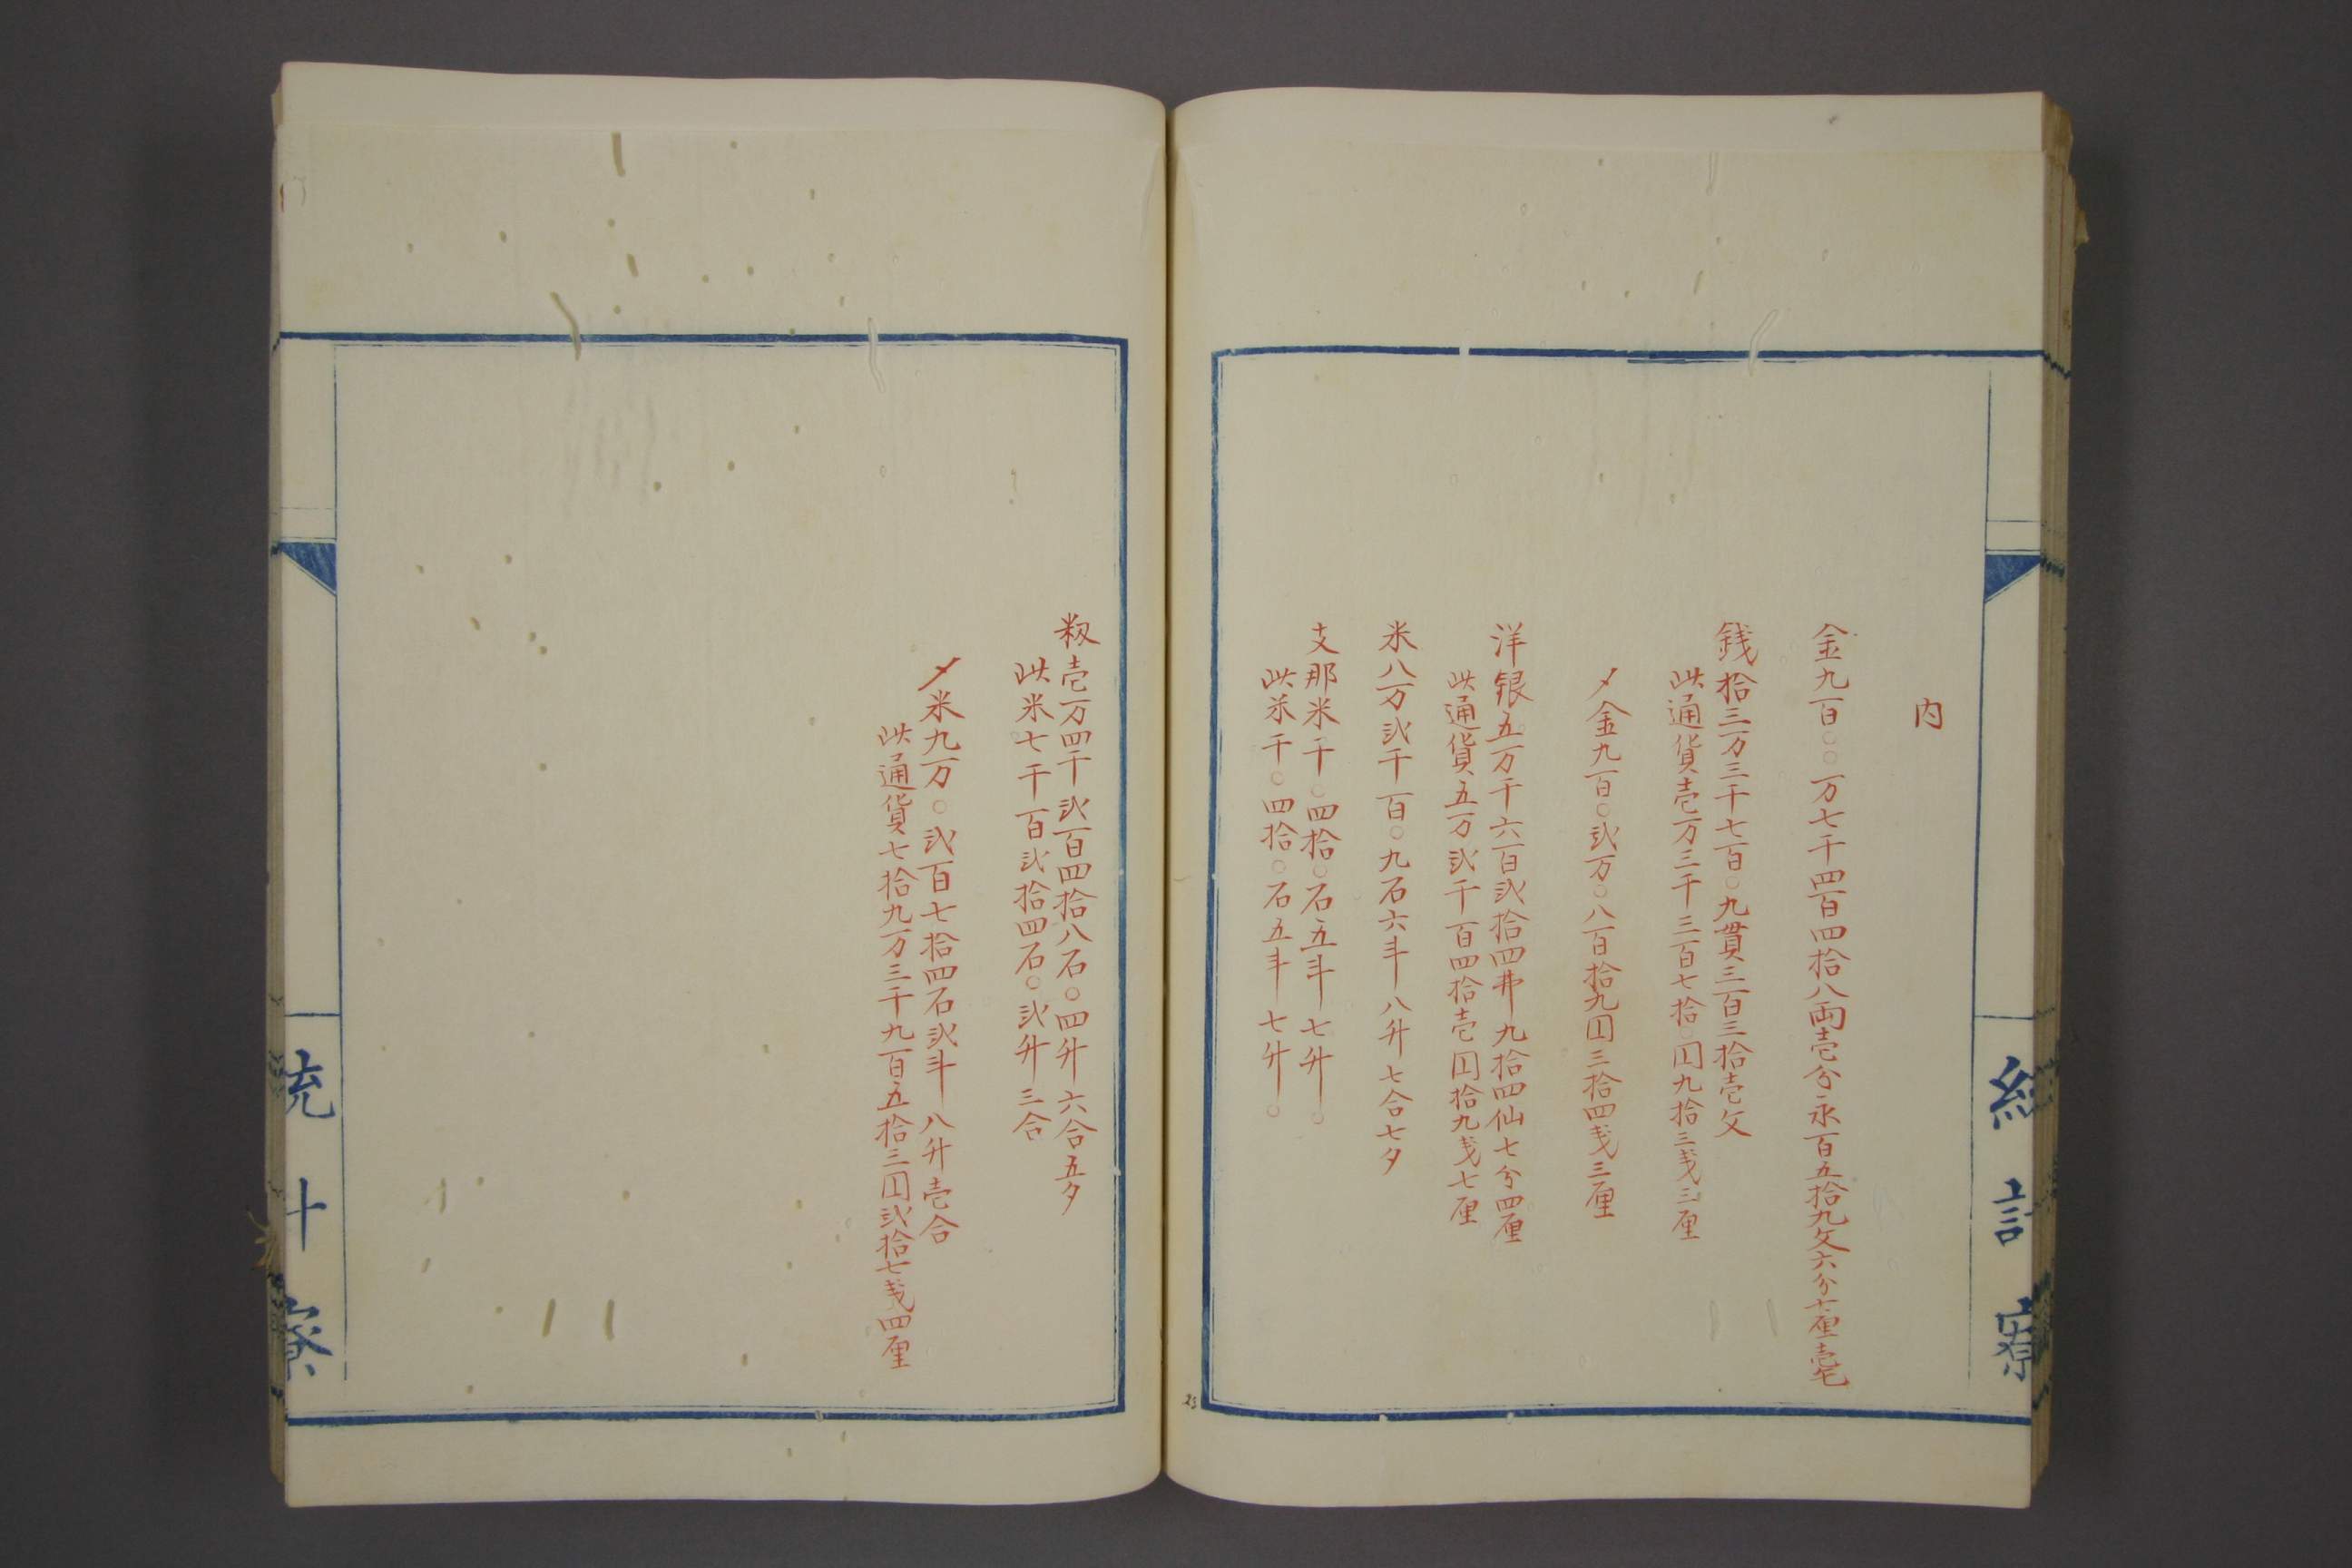 内
金九百〇〇万七千四百四拾八両壱分永百五拾九文六分七厘壱毛
銭拾三万三千七百〇九貫三百三拾壱文
此通貨壱万三千三百七拾〇円九拾三銭三厘
〆金九百〇弐万〇八百拾九円三拾四銭三厘
洋银五万千六百弐拾四弗九拾四仙七分四厘
此通貨五万弐千百四拾壱円拾九銭七厘
米八万弐千百〇九石六斗八升七合七夕
支那米千〇四拾〇石五斗七升〇
此米千〇四拾〇石五斗七升〇
籾壱万四千弐百四拾八石〇四升六合五夕
此米七千百弐拾四石〇弐升三合
〆米九万〇弐百七拾四石弐斗八升壱合
此通貨七拾九万三千九百五拾三円弐拾七銭四厘
統計寮
統計寮
23